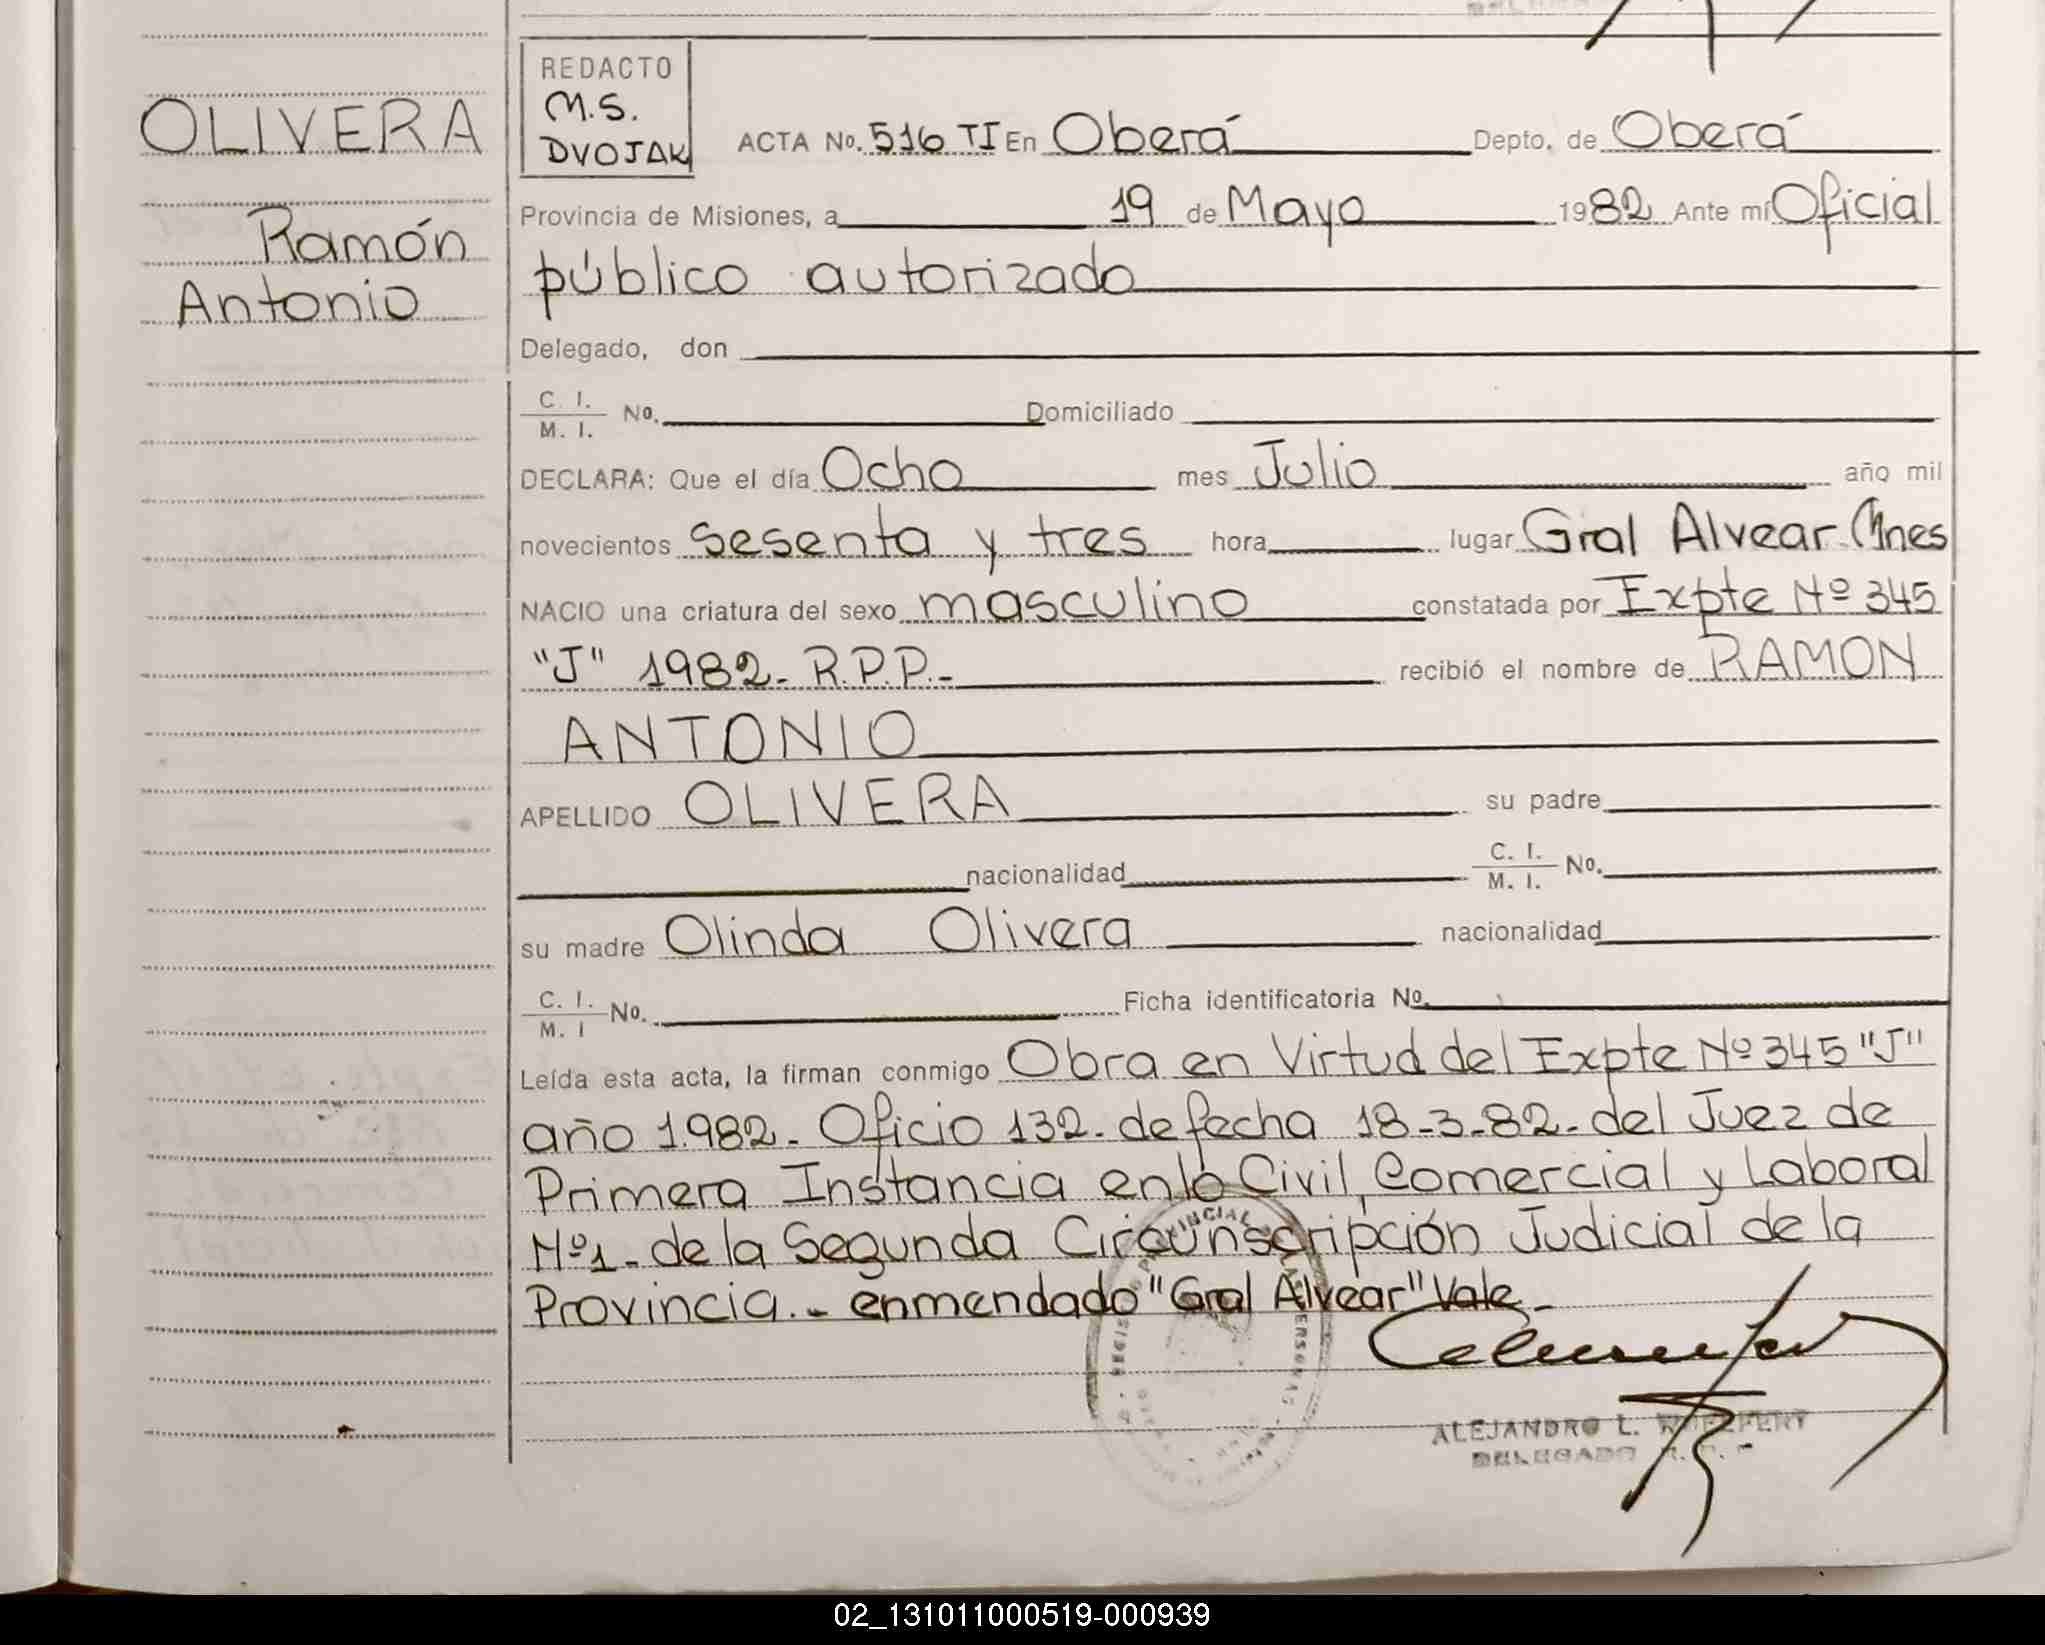 OLIVERA
Ramón
Antonio
REDACTO
M.S.
DVOJAK
ACTA No. 516 TI En Oberá Depto. de Oberá
Provincia de Misiones, a 19 de Mayo 1982 Ante mí Oficial
público autorizado
Delegado, don
C. I. / M. I. No. Domiciliado
DECLARA: Que el día Ocho mes Julio año mil
novecientos sesenta y tres hora lugar Gral Alvear Mnes
NACIO una criatura del sexo masculino constatada por Expte Nº 345
"J" 1982- R.P.P.- recibió el nombre de RAMON
ANTONIO
APELLIDO OLIVERA su padre
nacionalidad C. I. / M. I. No.
su madre Olinda Olivera nacionalidad
C. I. / M. I No. Ficha identificatoria No.
Leída esta acta, la firman conmigo Obra en Virtud del Expte Nº 345 "J"
año 1.982- Oficio 132- de fecha 18-3-82- del Juez de
Primera Instancia en lo Civil, Comercial y Laboral
Nº1- de la Segunda Circunscripción Judicial de la
Provincia.- enmendado "Gral Alvear" Vale-
ALEJANDRO L.
DELEGADO
02_131011000519-000939